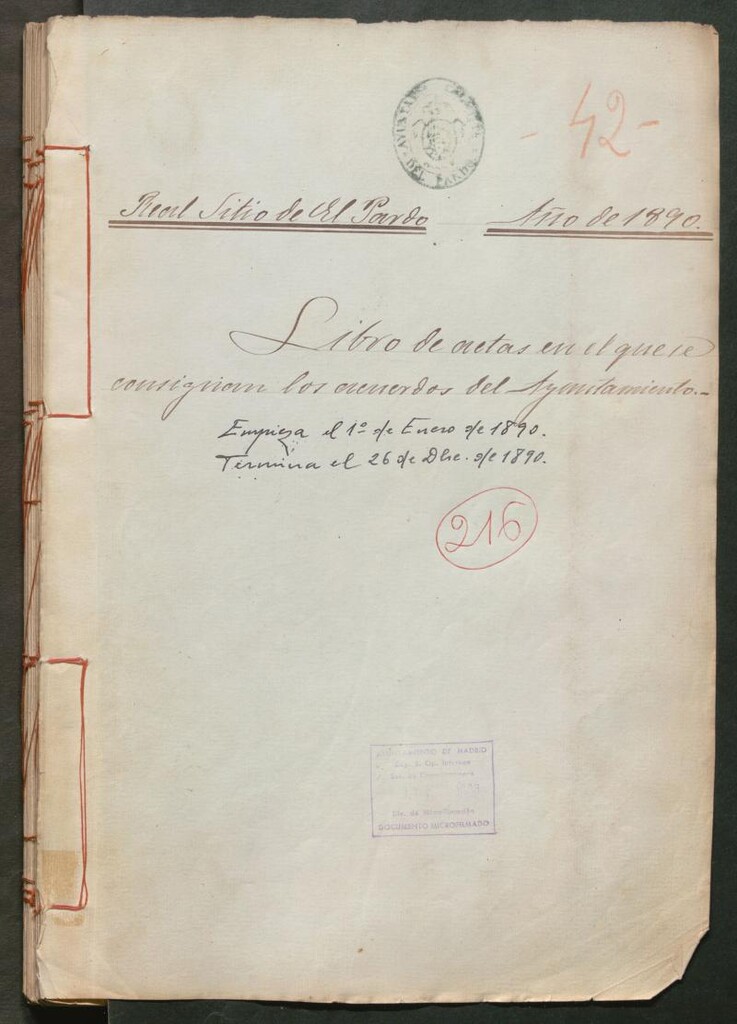 AYUNTAM
DEL PARDO
- 42 -
Real Sitio de El Pardo Año de 1890.
Libro de actas en el que se
consignan los acuerdos del Ayuntamiento.-
Empieza el 1º de Enero de 1890.
Termina el 26 de Dbe. de 1890.
216
AYUNTAMIENTO DE MADRID
Dep. S. Op. Internos
DOCUMENTO MICROFILMADO